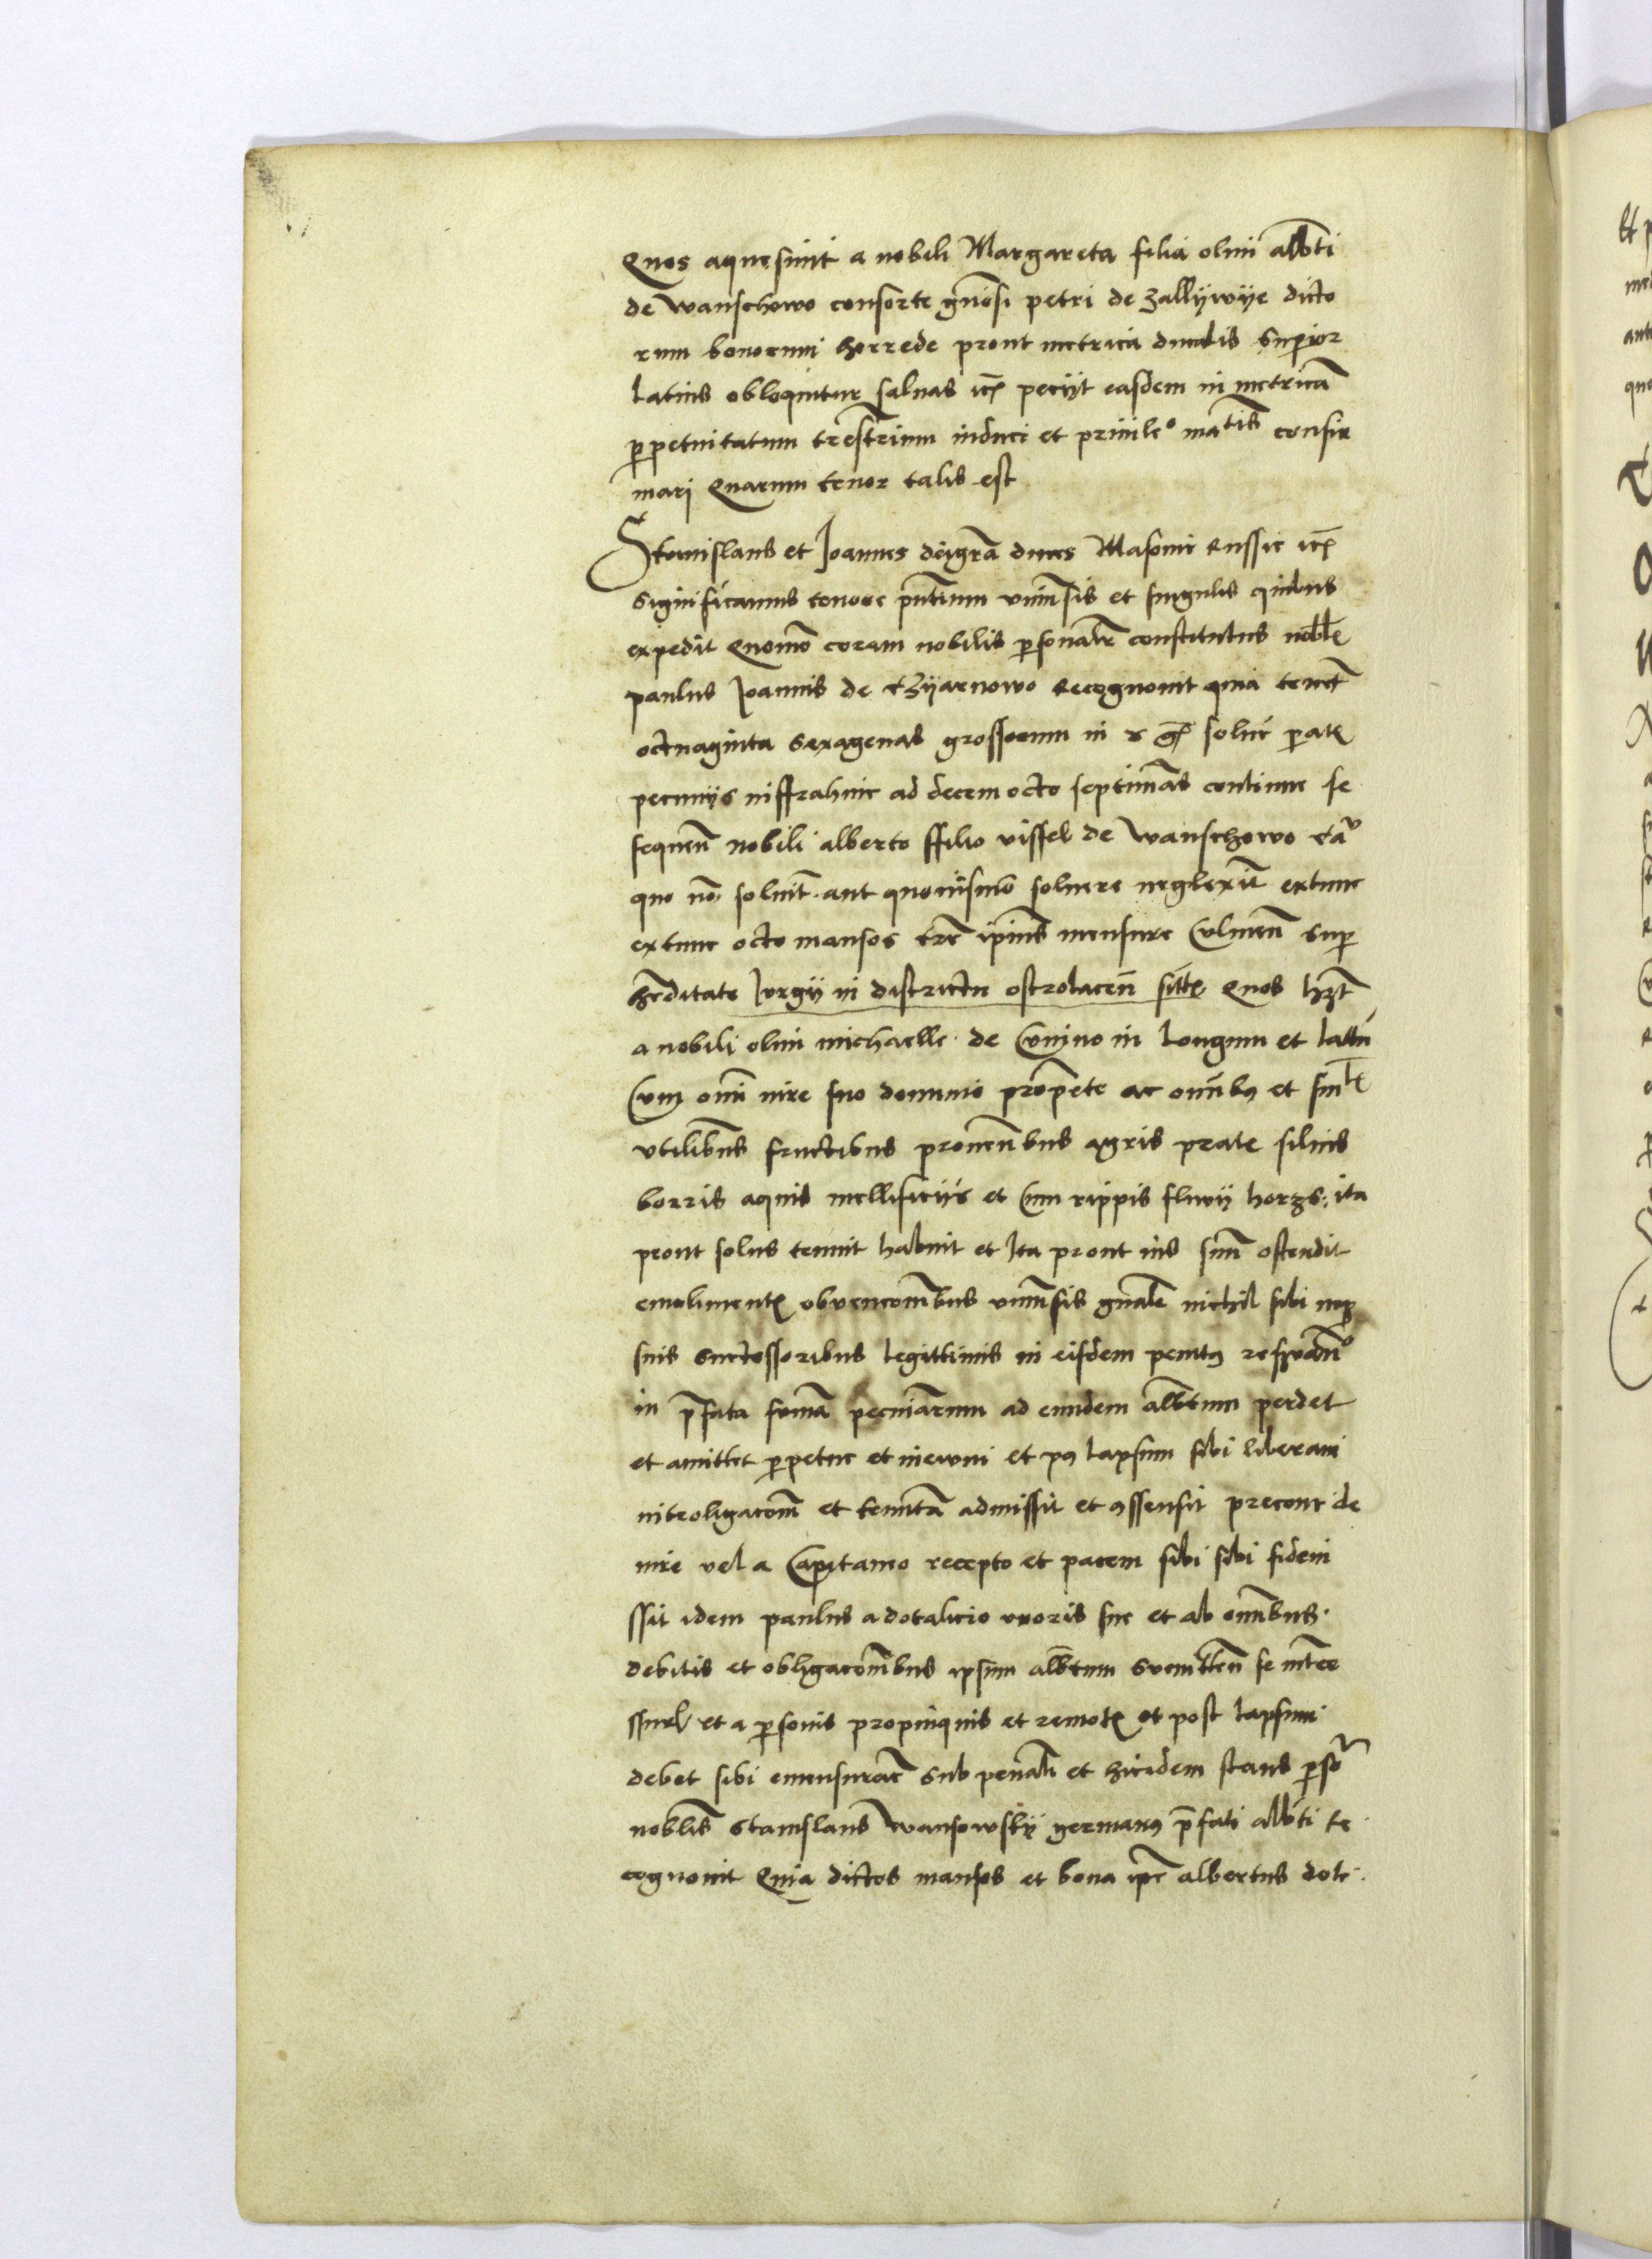 Quos aquesiuit a nobili Margareta filia olim albti
de Wanschowo consorte gnosi petri de Zallijwije dicto
rum bonorum herrede prout metrica ducalis superior
latius obloquitur saluas etc petijt easdem in metricam
perpetuitatum trestrium induci et priuileo matis confir
mari Quarum tenor talis est
Stanislaus et Joannes deigra duces Masouie Russie etc
Significamus tenore pntium vniuersis et singulis quibus
expedit Quomo coram nobilis personalr constitutus nobl
paulus Joannis de Czijarnowo Recognouit quia tenet
octuaginta sexagenas grossorum in soluere parat
pecunijs inffrahinc ad decem octo septimas continue se
sequen nobili alberto ffilio vissel de Wanschowo
quo no soluit aut quouismo soluere neglexit extunc
extunc octo mansos tre ipius mensure Culmen super
hereditate Jurgij in districtu ostrolacen sitt Quos hzt
a nobili olim michaelle de Cunino in longum et latum
Cum omni iure suo dominio propete ac omnibus et
vtilibus fructibus prouenbus agris prate siluis
borris aquis mellificijs et Cum rippis fluuij horzs ita
prout solus tenuit habuit et Ita prout ius suum ostendit
emolimentis obuencombus vniuersis gnale nichil sibi neque
suis Suctessoribus legittimis in eisdem penitus reseruan
in prefata summa pecuniarum ad eundem albtum perdet
et amittet perpetue et ineuum et post lapsum sibi liberam
introligacom et tenuta admissit et assensit precone de
iure vel a Capitaneo recepto et pacem sibi sibi fideiu
ssit idem paulus a dotalicio vxoris sue et ab omnibus
debitis et obligacombus ipsum albtum se inter
et a personis propinquis et remot et post lapsum
debet sibi emensurare sub penali et Ibidem stans perso
noblis Stanislaus Wansowskij germanus prefati albti re
cognouit Quia dictos mansos et bona ipe albertus dote